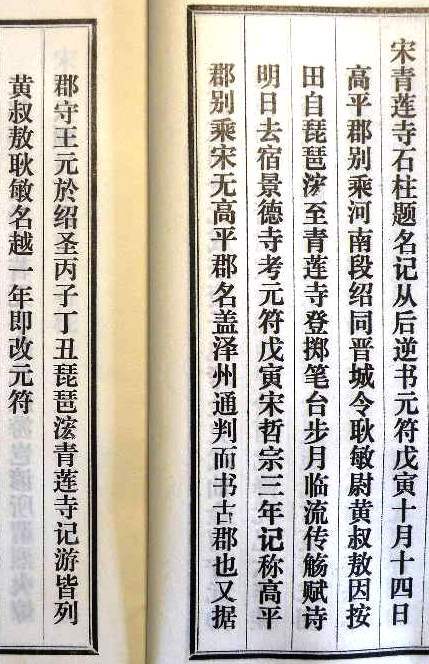 宋青莲寺石柱题名记从后逆书元符戊寅十月十四日
高平郡别乘河南段绍同晋城令耿敏尉黄叔敖因按
田自琵琶泫至青莲寺登掷笔台步月临流传觞赋诗
明日去宿景德寺考元符戊寅宋哲宗三年记称高平
郡别乘宋无高平郡名盖泽州通判而书古郡也又据
郡守王元於绍圣丙子丁丑琵琶浤青莲寺记游皆列
黄叔敖耿敏名越一年即改元符